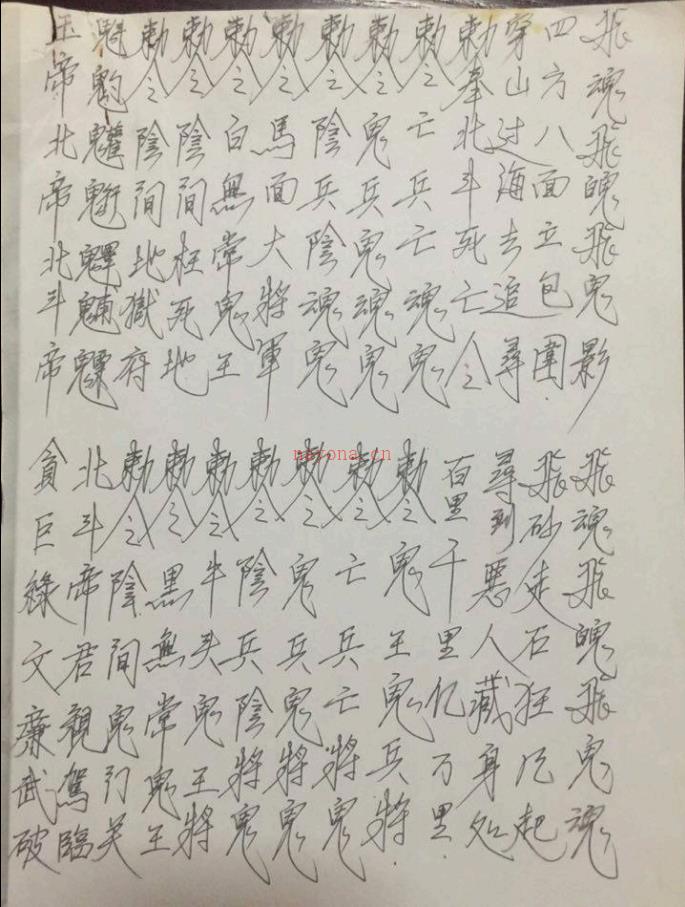 飛魂飛魄飛鬼影
四方八面立包圍
穿山过海去追尋
勅奉北斗死亡令
勅令亡兵亡魂鬼
勅令鬼兵鬼魂鬼
勅令陰兵陰魂鬼
勅令馬面大將軍
勅令白無常鬼王
勅令陰間枉死地
勅令陰間地獄府
魁
玉帝北帝北斗帝
飛魂飛魄飛鬼魂
飛砂走石狂风起
尋到惡人藏身处
百里千里亿万里
勅令鬼王鬼兵將
勅令亡兵亡將鬼
勅令鬼兵鬼將鬼
勅令陰兵陰將鬼
勅令牛头鬼王將
勅令黑無常鬼王
勅令陰間鬼门关
北斗帝君親駕臨
貪巨祿文廉武破
nayona.cn